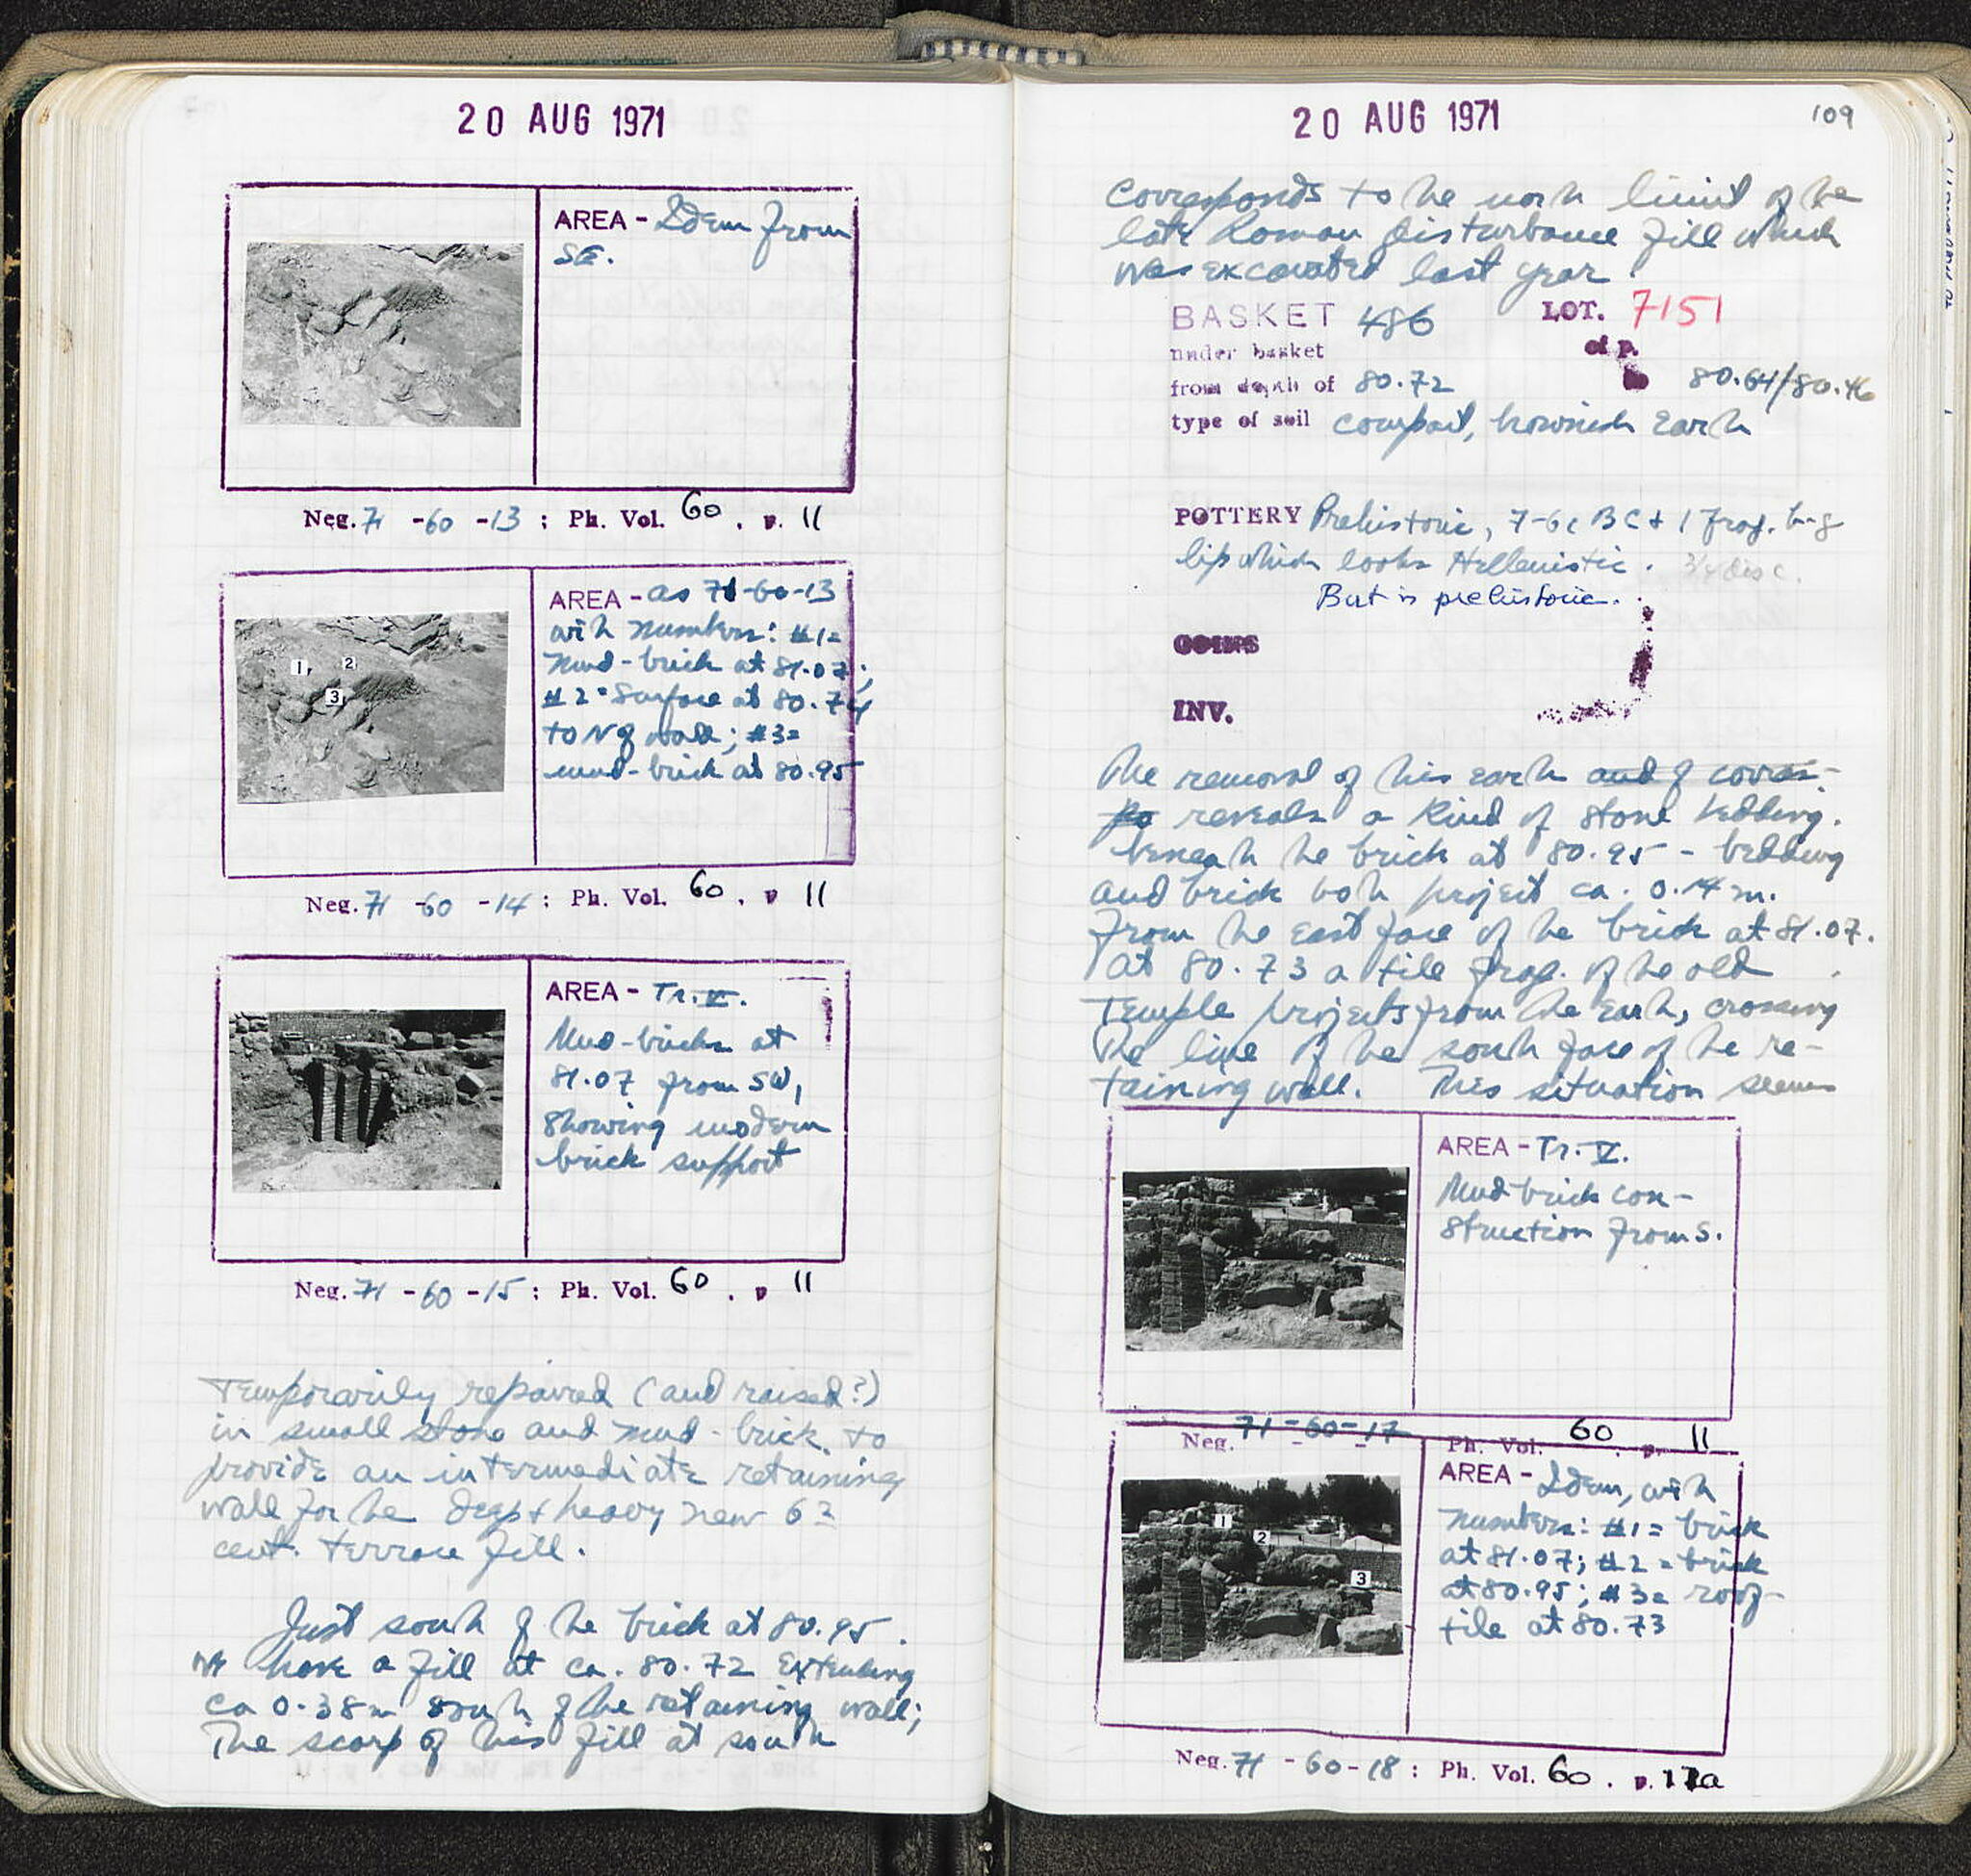 20 AUG 1971
AREA - Idem from
SE.
Neg. 71 - 60 - 13 : Ph. Vol. 60 . p. 11
AREA - as 71-60-13
with numbers: #1=
mud-brick at 81.07;
#2 = surface at 80.74
to N of wall; #3=
mud-brick at 80.95
1
2
3
Neg. 71 - 60 - 14 : Ph. Vol. 60 . p 11
AREA - Tr. V.
Mud-bricks at
81.07 from SW,
showing modern
brick support
Neg. 71 - 60 - 15 : Ph. Vol. 60 . p 11
Temporarily repaired (and raised?)
in small stone and mud-brick to
provide an intermediate retaining
wall for the deep & heavy new 6th
cent. terrace fill.
Just south of the brick at 80.95
we have a fill at ca. 80.72 extending
ca 0.38m south of the retaining wall;
The scarp of this fill at south
20 AUG 1971
109
corresponds to the north limit of the
late Roman disturbance fill which
was excavated last year.
BASKET 486 LOT. 7151
under basket of p.
from depth of 80.72 to 80.64/80.46
type of soil compact, brownish earth
POTTERY Prehistoric, 7-6c BC + 1 frag. b-g
lip which looks Hellenistic. 3/4 disc.
But is prehistoric.
COINS
INV.
The removal of this earth and of corres-
po reveals a kind of stone bedding
beneath the brick at 80.95 - bedding
and brick both project ca. 0.14 m.
from the east face of the brick at 81.07.
At 80.73 a tile frag. of the old
Temple projects from the earth, crossing
the line of the south face of the re-
taining wall. This situation seems
AREA - Tr. V.
Mud brick con-
struction from S.
Neg. 71-60-17 Ph. Vol. 60 . p. 11
AREA - Idem, with
numbers: #1= brick
at 81.07; #2 = brick
at 80.95; #3= roof-
tile at 80.73
1
2
3
Neg. 71 - 60 - 18 : Ph. Vol. 60 . p. 11a